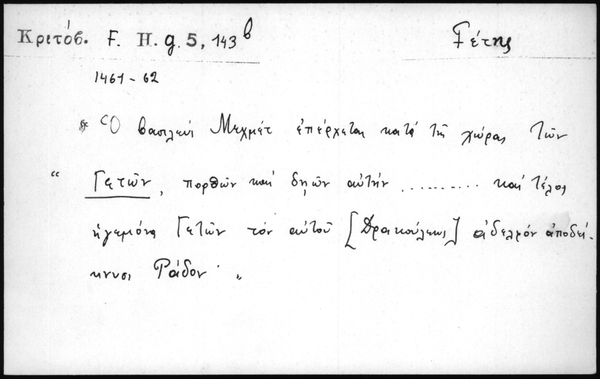 Κριτόβ. F. H. g. 5, 143 b
Γέτης
1461-62
* Ὁ βασιλεύς Μεχμέτ ἐπέρχεται κατά τῆς χώρας τῶν
“ Γετῶν, πορθῶν καί δηῶν αὐτήν .......... καί τέλος
ἡγεμόνα Γετῶν τόν αὐτοῦ [Δρακούλεως] ἀδελφόν ἀποδεί-
κνυσι Ράδον „